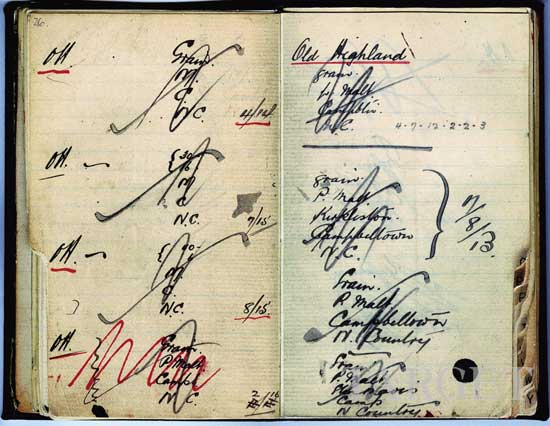 26.
OH
Grain
M
C
N.C.
4/14
OH
{ 30
16
M
C
N.C.
7/15
OH
{ 40
M
C
N.C.
8/15
OH
Grain
P. Malt
Camp
N.C.
Old Highland
Grain
L. Malt
N.C.
4-7-12-2-2-3
Grain
P. Malt
Kirkliston
Campbeltown
N.C.
7/8/13.
Grain
P. Malt
Campbeltown
N. Country
Grain
P. Malt
Camp
N. Country